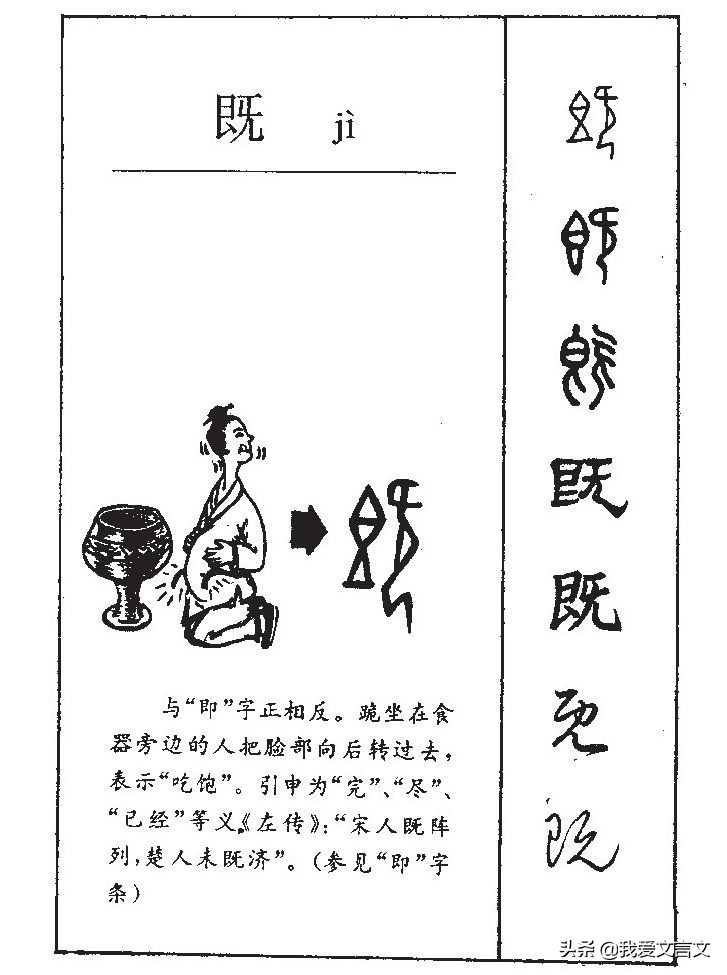 既 jì
与“即”字正相反。跪坐在食
器旁边的人把脸部向后转过去，
表示“吃饱”。引申为“完”、“尽”、
“已经”等义。《左传》：“宋人既阵
列，楚人未既济”。（参见“即”字
条）
既
既
既
既
既
既
既
头条 @我爱文言文